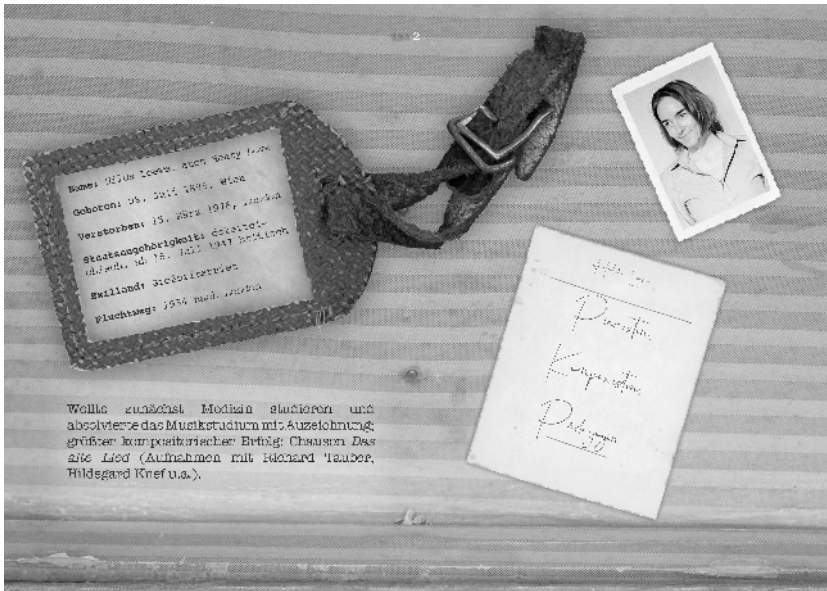 2
Name: Loewe, auch Henry Love
Geboren: Juli Wien
Verstorben: 15. März 1976, London
Staatsangehörigkeit: österrei-
chisch, ab Juli 1947 britisch
Exilland: Großbritannien
Fluchtweg: 1934 nach London
Pianistin,
Komposition,
Wollte zunächst Medizin studieren und
absolvierte das Musikstudium mit Auzeichnung;
größter kompositorischer Erfolg: Chanson Das
alte Lied (Aufnahmen mit Richard Tauber,
Hildegard Knef u.a.).